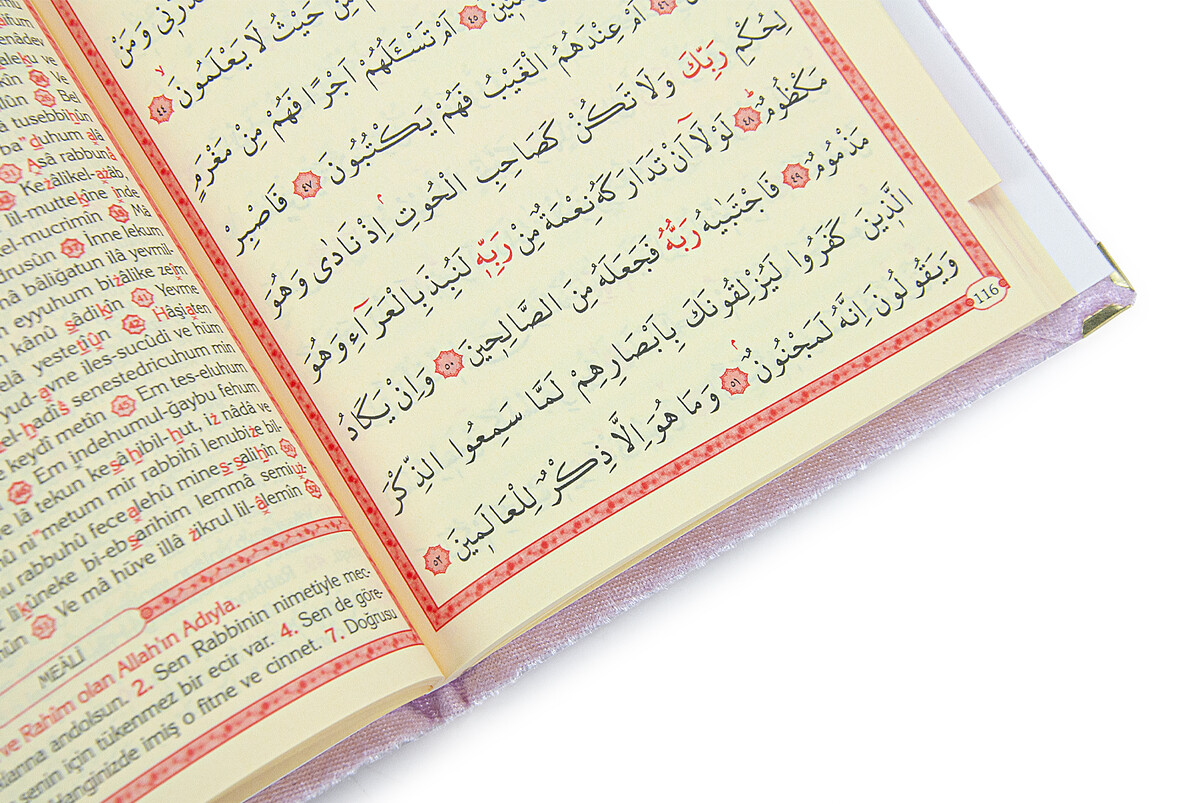 وَمَنْ
مِنْ حَيْثُ لَا يَعْلَمُونَ ٤٤
اَمْ تَسْـَٔلُهُمْ اَجْرًا فَهُمْ مِنْ مَغْرَمٍ ٤٥
٤٦ اَمْ عِنْدَهُمُ الْغَيْبُ فَهُمْ يَكْتُبُونَ ٤٧ فَاصْبِرْ
لِحُكْمِ رَبِّكَ وَلَا تَكُنْ كَصَاحِبِ الْحُوتِ اِذْ نَادٰى وَهُوَ
مَكْظُومٌ ٤٨ لَوْلَٓا اَنْ تَدَارَكَهُ نِعْمَةٌ مِنْ رَبِّه۪ لَنُبِذَ بِالْعَرَٓاءِ وَهُوَ
مَذْمُومٌ ٤٩ فَاجْتَبٰيهُ رَبُّهُ فَجَعَلَهُ مِنَ الصَّالِح۪ينَ ٥٠ وَاِنْ يَكَادُ
الَّذ۪ينَ كَفَرُوا لَيُزْلِقُونَكَ بِاَبْصَارِهِمْ لَمَّا سَمِعُوا الذِّكْرَ
وَيَقُولُونَ اِنَّهُ لَمَجْنُونٌ ٥١ وَمَا هُوَ اِلَّا ذِكْرٌ لِلْعَالَم۪ينَ ٥٢
116
kîn Ve
Bel
â tusebbihûn
duhum alâ
31 Asâ rabbunâ
Kezâlikel-azâb,
lil-muttekîne inde
el-mucrimîn Mâ
drusûn 37 İnne lekum
nâ bâliğatun ilâ yevmil-
eyyuhum bizâlike zeîm
kânû sâdikîn 41 Yevme
elâ yestetiûn 42 Hâşiaten
yud-avne iles-sucûdi ve hüm
el-hadîs senestedricuhum min
keydî metîn 45 Em tes-eluhum
46 Em indehumul-ğaybu fehum
ve lâ tekun kesâhibil-hut, iz nâdâ ve
ni"metum mir rabbihî lenubize bil-
rabbuhû fecealehû mines-salihîn 50
liküneke bi-ebsarihim lemmâ semiuz-
Ve mâ hüve illâ zikrul lil-âlemîn 52
MEÂLİ
ve Rahîm olan Allah'ın Adıyla.
andolsun. 2. Sen Rabbinin nimetiyle mec-
senin için tükenmez bir ecir var. 4. Sen de göre-
Hanginizde imiş o fitne ve cinnet. 7. Doğrusu